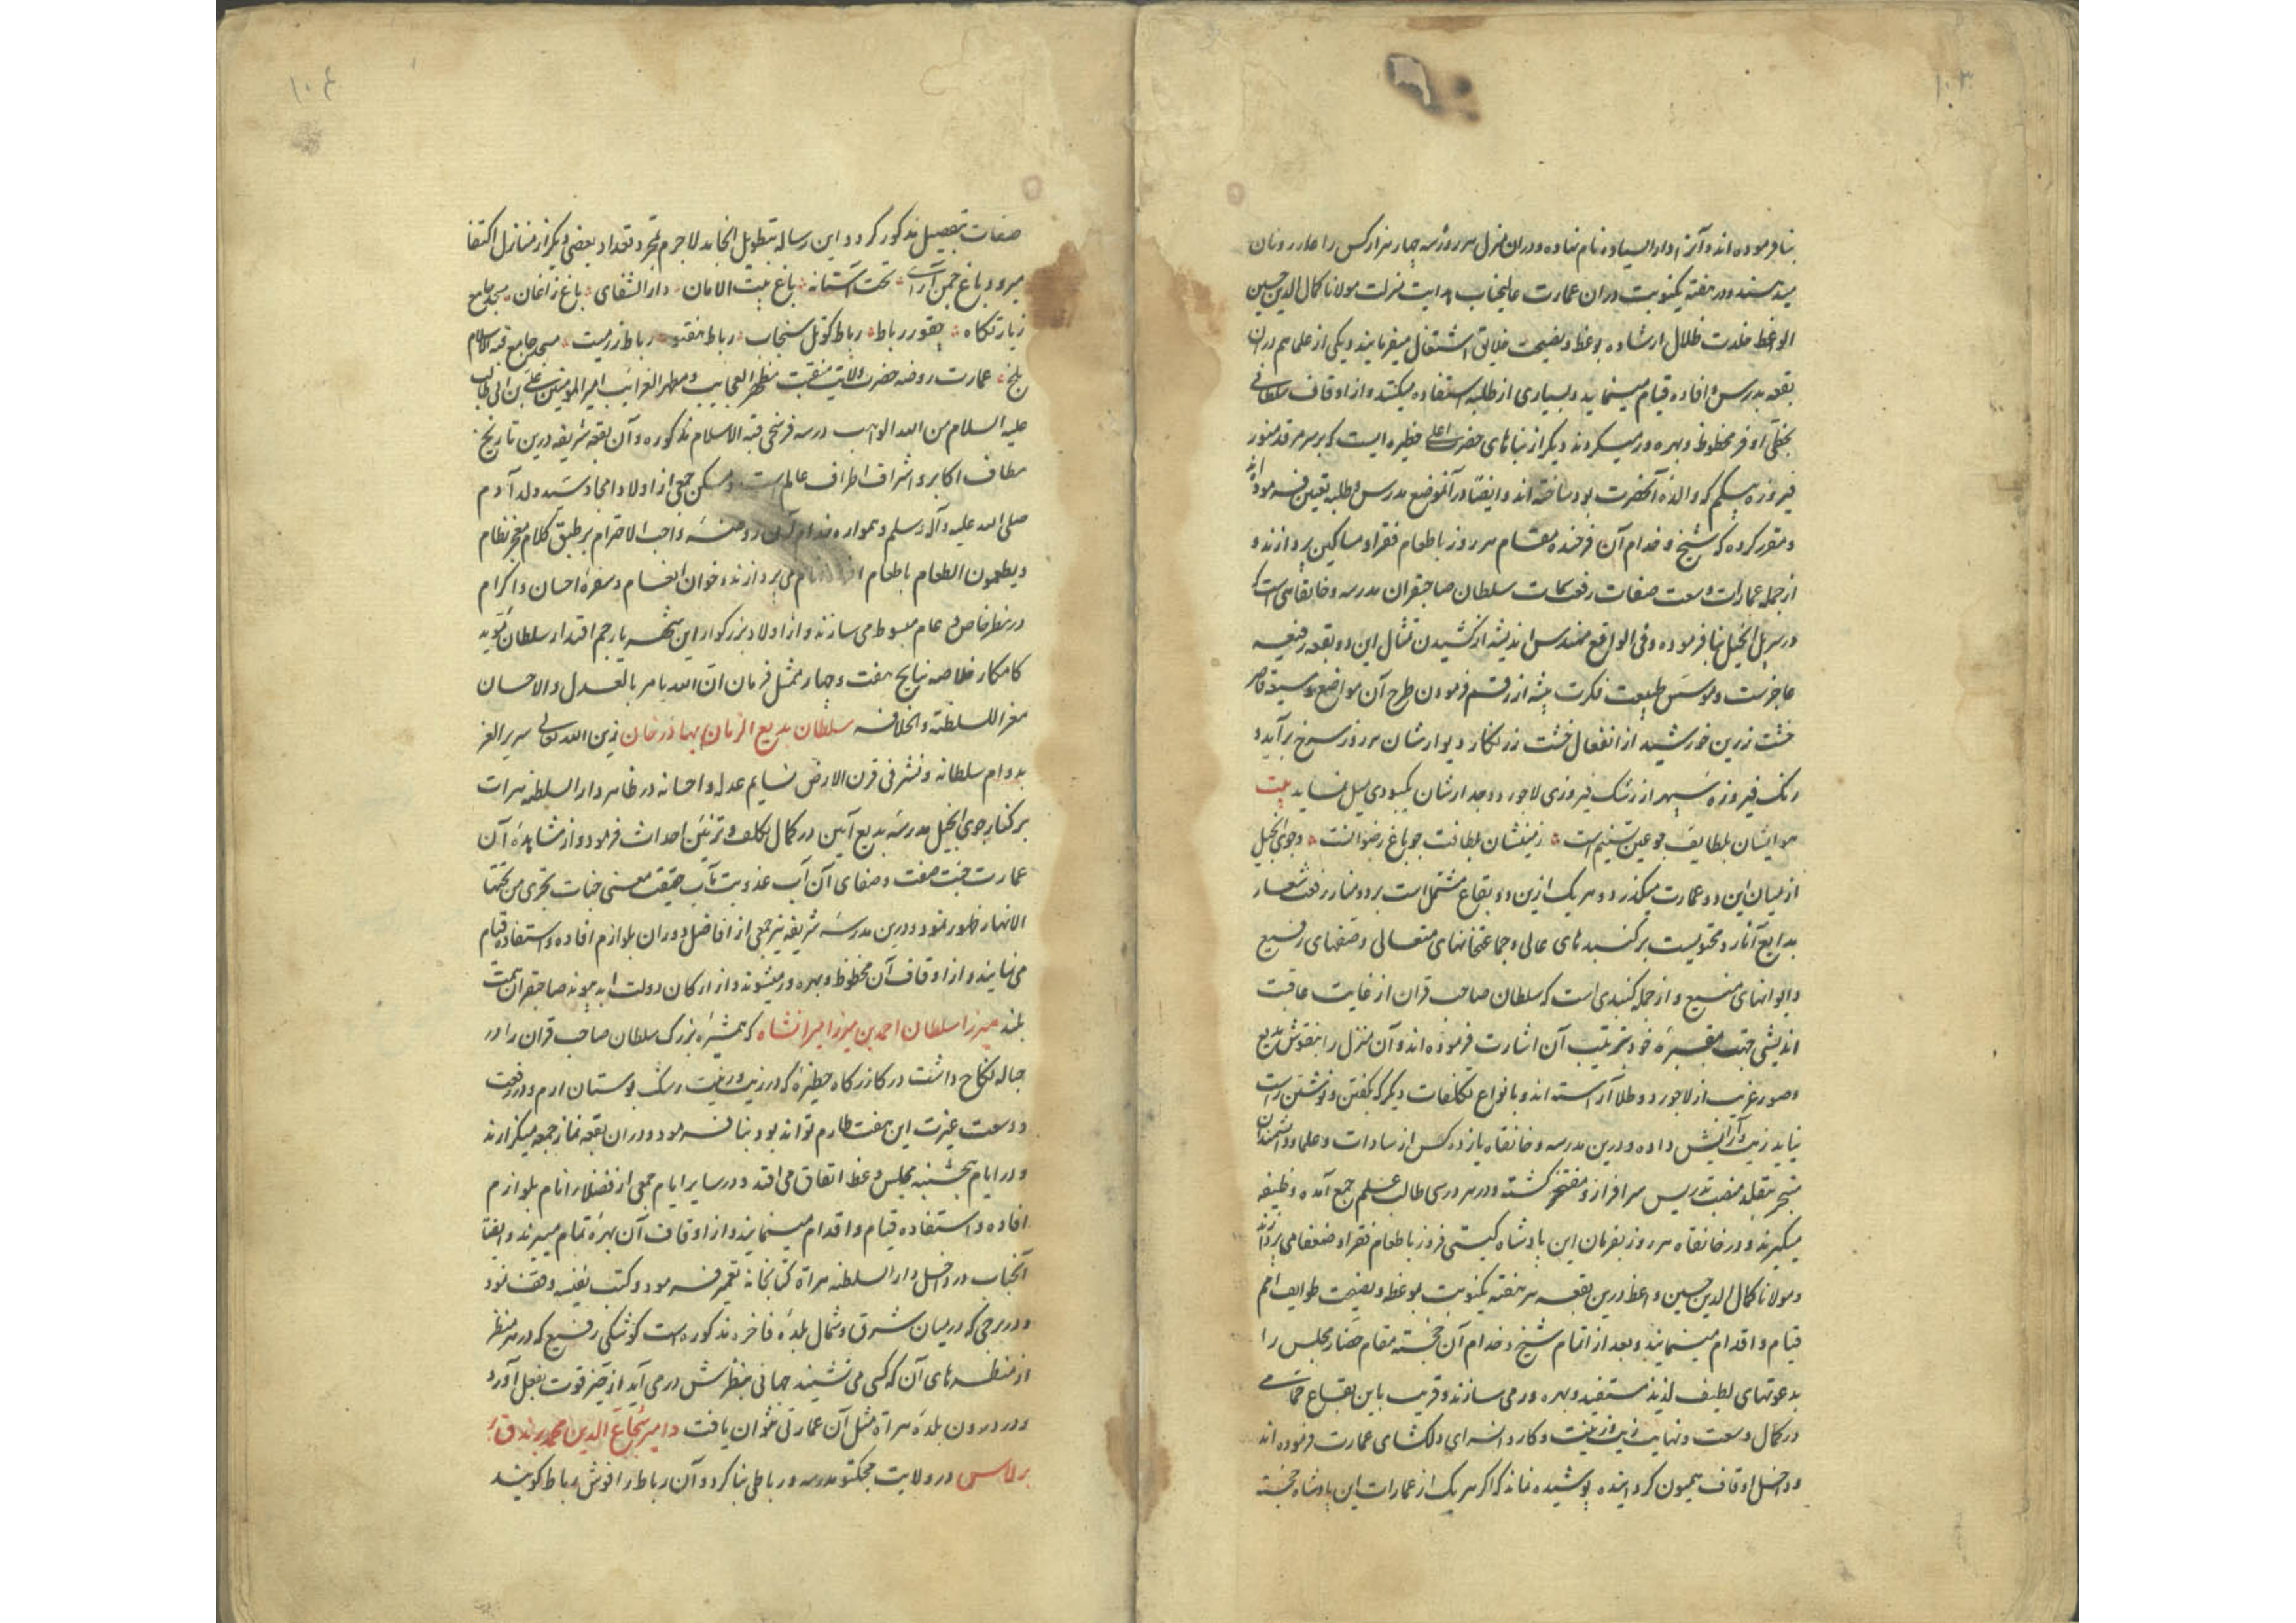 ۱۰۳
بنا فرموده‌اند و آنرا دار السیاده نام نهاده و در ان منزل هر روز سه چهار هزار کس را
میدهند و در هفته یکنوبت در ان عمارت عالیجناب هدایت منزلت مولانا کمال الدین حسین
الواعظ خلدت ظلال ارشاده بوعظ و نصیحت خلایق اشتغال میفرمایند و یکی از علما هم در ان
بقعه بدرس و افاده قیام مینماید و بسیاری از طلبه استفاده میکنند و از اوقاف سلطانی
بحظی اوفر محظوظ و بهره ور میگردند دیگر از بناهای حضرت اعلی حظیره ایست که بر سر مرقد منور
فیروزه بیگم که والده آنحضرت بود ساخته اند و ایضا در آنموضع مدرس و طلبه تعیین فرموده اند
و مقرر کرده که شیخ و خدام آن فرخنده مقام هر روز باطعام فقرا و مساکین پردازند و
از جمله عمارات وسعت صفات رفعت سمات سلطان صاحبقران مدرسه و خانقاهی است که
در سر پل انجیل بنا فرموده و فی الواقع مهندس اندیشه از کشیدن تمثال این دو بقعه رفیعه
عاجز ست و موسس طبیعت فکرت پیشه از رقم فرمودن طرح آن مواضع وسیعه قاصر
خشت زرین خورشید از انفعال خشت زرنگار دیوارشان هر روز سرخ برآید و
رنگ فیروزه سپهر از رشک فیروزی لاجورد جدارشان بکبودی میل نماید بیت
هوایشان بلطایف چو عین تسنیم است زمینشان بلطافت چو باغ رضوانست و جوی انجیل
از میان این دو عمارت میگذرد و هر یک ازین دو بقاع مشتمل است بر دو منار رفعت شعار
بدایع آثار و محتویست بر گنبدهای عالی و جماعتخانهای متعالی و صفهای رفیع
و ایوانهای منیع و از جمله گنبدی است که سلطان صاحب قران از غایت عاقبت
اندیشی جهت مقبره خود بترتیب آن اشارت فرموده اند و آن منزل را بنقوش بدیع
و صور غریب از لاجورد و طلا آراسته اند و بانواع تکلفات دیگر که بگفتن و نوشتن راست
نیاید زیب و آرایش داده و درین مدرسه و خانقاه یازده کس از سادات و علما و دانشمندان
متبحر بتقلد منصب تدریس سرافراز و مفتخر گشته و در هر درسی طالب علم جمع آمده وظیفه
میگیرند و در خانقاه هر روز بفرمان این پادشاه گیتی فروز باطعام فقرا و ضعفا می پردازند
و مولانا کمال الدین حسین واعظ درین بقعه هر هفته یکنوبت بوعظ و نصیحت طوایف امم
قیام و اقدام مینمایند و بعد از اتمام شیخ و خدام آن خجسته مقام حضار مجلس را
بدعوتهای لطیف لذیذ مستفید و بهره ور می سازند و قریب باین بقاع حمامی
در کمال وسعت و نهایت زیب و زینت و کاروانسرای دلگشای عمارت فرموده اند
و داخل اوقاف همیون گردانیده پوشیده نماند که اگر هر یک از عمارات این پادشاه خجسته
۱۰۴
صفات بتفصیل مذکور گردد این رساله بتطویل انجامد لاجرم بمجرد تعداد بعضی دیگر از منازل اکتفا
میرود باغ جهن آرای تخت آستانه باغ بیت الامان دار الشفای باغ زاغان مسجد جامع
زیارتگاه چقور رباط رباط کوتل سنجاب رباط رباط مسجد جامع قبة الاسلام
بلخ عمارت روضه حضرت ولایت منقبت مظهر العجایب و مظهر الغرایب امیر المومنین علی بن ابی طالب
علیه السلام من الله الواهب در سه فرسخی قبة الاسلام مذکوره و آن بقعه شریفه درین تاریخ
مطاف اکابر و اشراف اطراف عالم است و مسکن جمعی از اولاد امجاد سید ولد آدم
صلی الله علیه و آله وسلم و همواره خدام آن روضه واجب الاحترام بر طبق کلام معجز نظام
و یطعمون الطعام باطعام می پردازند و خوان انعام و سفره احسان و اکرام
در نظر خاص و عام مبسوط می سازند و از اولاد بزرگوار این شهریار جم اقتدار سلطان موید
کامکار خلاصه نتایج هفت و چهار ممتثل فرمان ان الله یامر بالعدل و الاحسان
معز السلطنة و الخلافه سلطان بدیع الزمان بهادر خان زین الله تعالی سریر العز
بدوام سلطانه و نشر فی قرن الارض نسایم عدله و احسانه در ظاهر دار السلطنه هرات
بر کنار جوی انجیل مدرسه بدیع آیین در کمال تکلف و تزیین احداث فرمود و از مشاهده آن
عمارت جنت صفت و صفای آن آب عذوبت مآب حقیقت معنی جنات تجری من تحتها
الانهار ظهور نمود و درین مدرسه شریفه نیز جمعی از افاضل دوران بلوازم افاده و استفاده قیام
می نمایند و از اوقاف آن محظوظ و بهره ور میشوند و از ارکان دولت ابد پیوند صاحبقران همت
بلند میرزا سلطان احمد بن میرزا میرانشاه که همشیره بزرگ سلطان صاحب قران را در
حباله نکاح داشت در کازرگاه حظیره که در زیب و زینت رشک بوستان ارم و در رفعت
و وسعت غیرت این هفت طارم تواند بود بنا فرمود و در ان بقعه نماز جمعه میگزارند
و در ایام پنجشنبه مجلس وعظ اتفاق می افتد و در سایر ایام جمعی از فضلاء انام بلوازم
افاده و استفاده قیام و اقدام مینمایند و از اوقاف آن بهره تمام میبرند و ایضا
آنجناب در داخل دار السلطنه هراة کتابخانه تعمیر فرمود و کتب نفیسه وقف نمود
و در برجی که در میان شرق و شمال بلده فاخره مذکوره است کوشکی رفیع که در هر منظر
از منظرهای آن که کسی می نشیند جهانی بنظرش در می آید از حیز قوت بفعل آورد
و در درون بلده هراة مثل آن عمارتی نتوان یافت و امیر شجاع الدین محمد برندق
برلاس در ولایت مدرسه و رباطی بنا کرد و آن رباط را رباط گویند